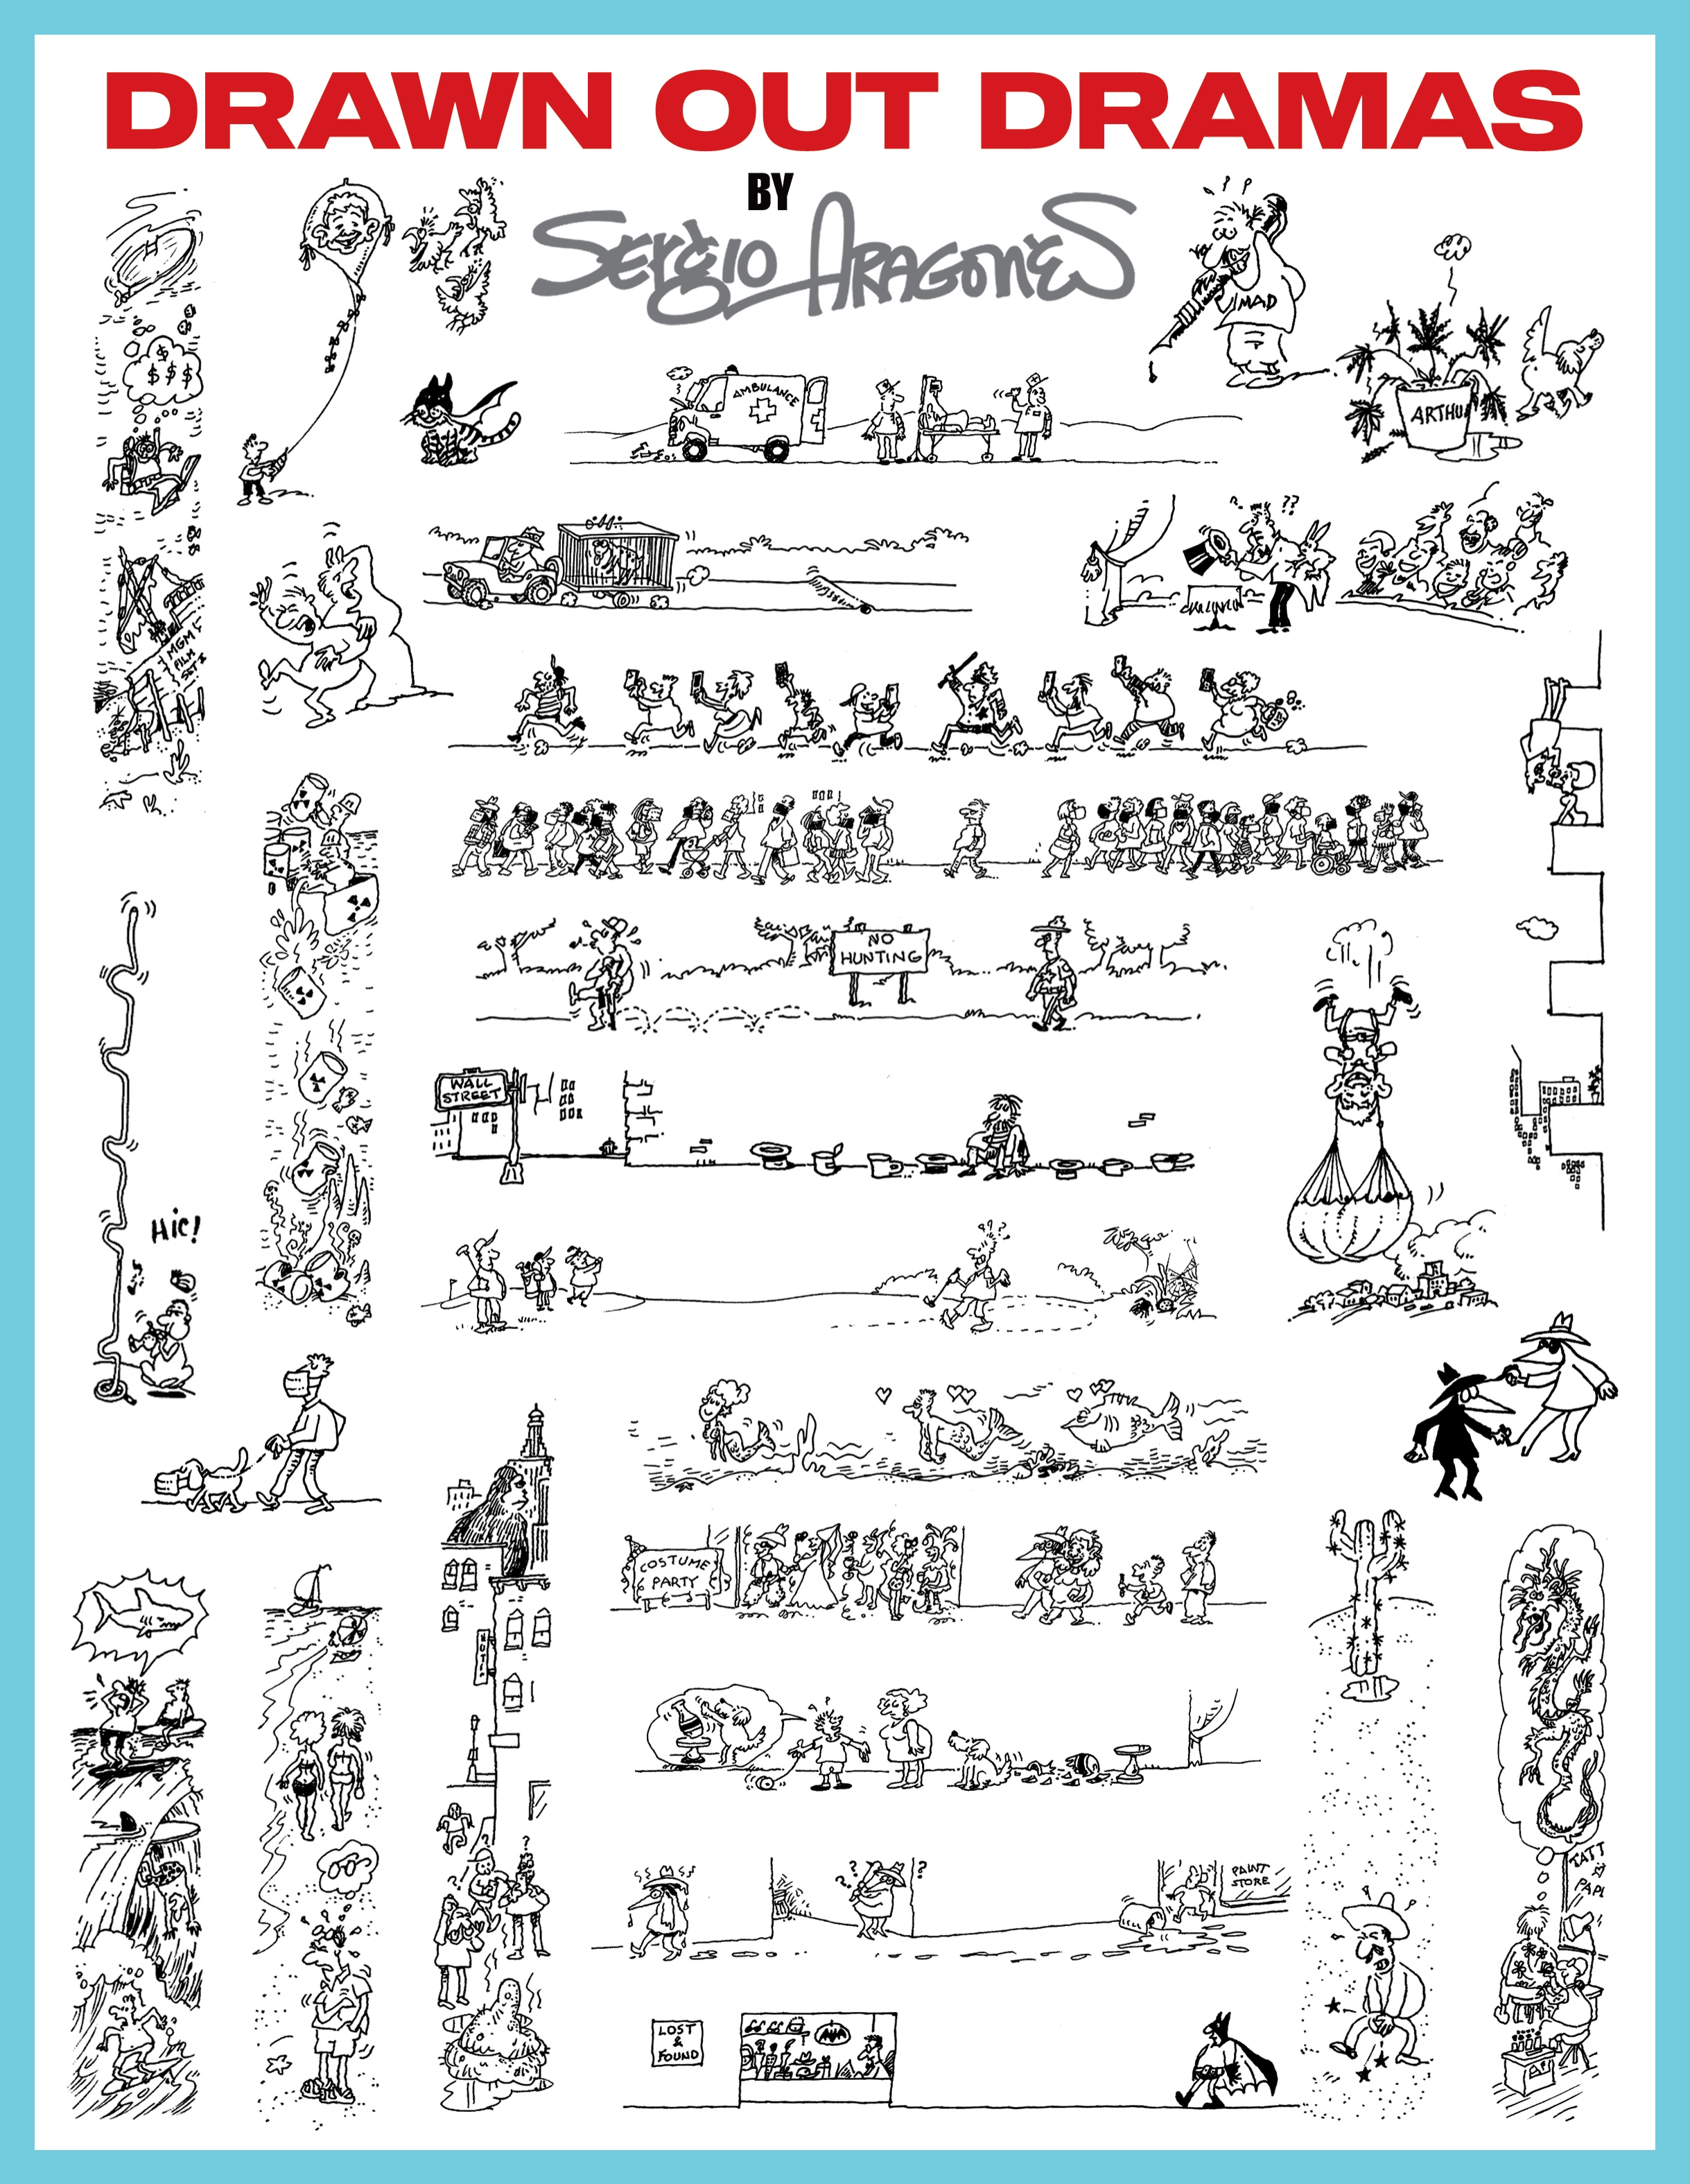 DRAWN OUT DRAMAS
BY
SERGIO ARAGONÉS
MAD
$
$ $ $
AMBULANCE
ARTHU
? ??
MGM
FILM
SET
NO
HUNTING
WALL
STREET
Hic!
COSTUME
PARTY
HOTEL
? ?
TATT
PAINT
STORE
? ? ?
LOST
&
FOUND